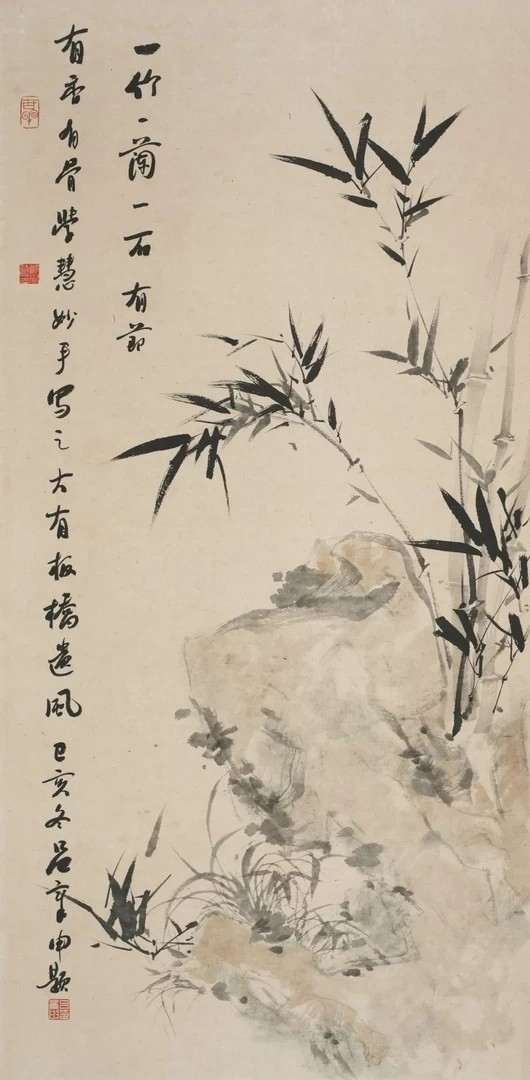 一竹一蘭一石有節
有香有骨学慧妙手写之大有板橋遺風己亥冬呂章申題